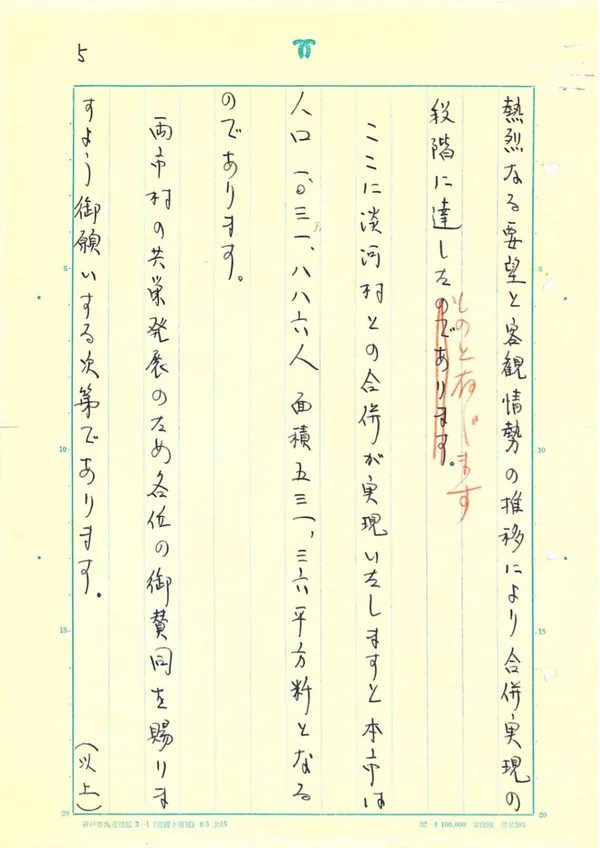 5
熱烈なる要望と客観情勢の推移により合併実現の
段階に達したのであります。
ものと存じます
ここに淡河村との合併が実現いたしますと本市は
人口一、〇三一、八八六人 面積五三一、三六平方粁となる
のであります。
両市村の共栄発展のため各位の御賛同を賜りま
すよう御願いする次第であります。
(以上)
5
10
15
20
5
10
15
20